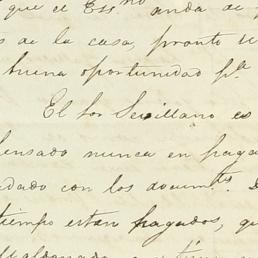 que el Essno anda de
s de la casa, pronto se
buena oportunidad pa
El Sor Sevillano es
pensado nunca en paga
dado con los documts. D
tiempo estan pagados, qu